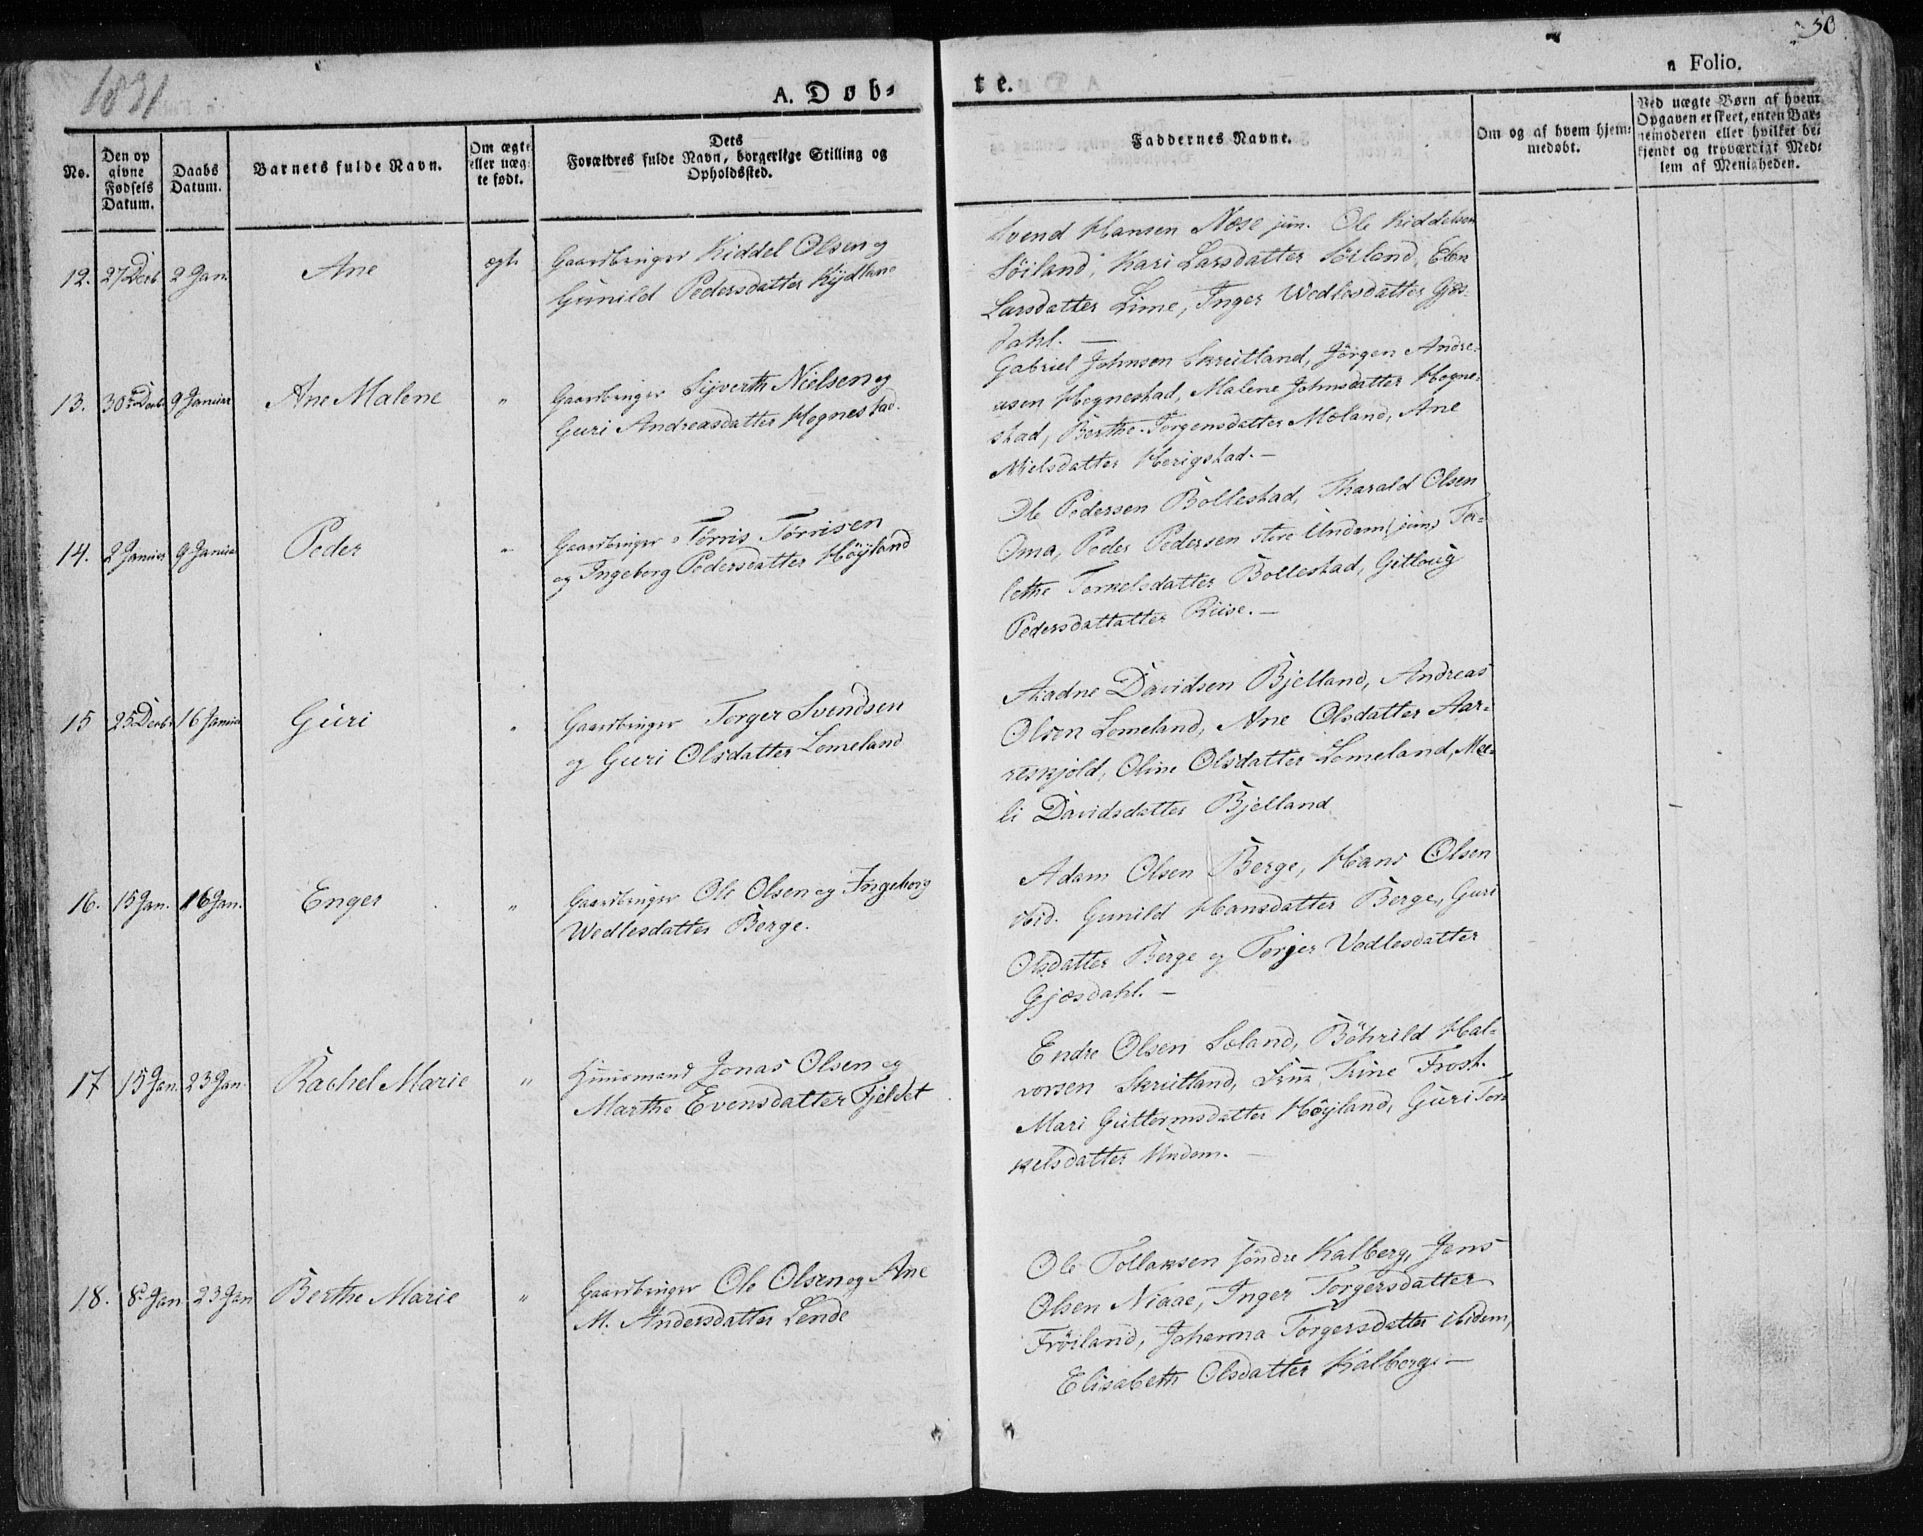 1831
A. Døb-
te.
30
Folio.
No.
Den op
givne
Fødsels
Datum.
Daabs
Datum.
Barnets fulde Navn.
Om ægte
eller uæg-
te født.
Dets
Forældres fulde Navn, borgerlige Stilling og
Opholdssted.
Faddernes Navne.
Om og af hvem hjem-
medøbt.
Ved uægte Børn af hvem
Opgaven er skeet, enten Bar-
nemoderen eller hvilket be-
kjendt og troværdigt Med-
lem af Menigheden.
12. 27 Decb 2 Jan. Ane ægte
Gaardbruger Kiddel Olsen og
Gunild Pedersdatter Kydland
Svend Hansen Næse jun. Ole Kiddelsen
Söiland, Kari Larsdatter Sörland, Elen
Larsdatter Lime, Inger Wedlesdatter Gjes-
dahl. —
13. 30 Decb 9 Januar Ane Malene "
Gaardbruger Sijverth Nielsen og
Guri Andreasdatter Hognestad.
Gabriel Johnsen Skreitland, Jörgen Andre-
asen Hognestad, Malene Johnsdatter Hogne-
stad, Berthe Torgensdatter Meland, Ane
Nielsdatter Herigstad. —
14. 2 Januar 9 Januar Peder "
Gaardbruger Törris Törrisen
og Ingeborg Pedersdatter Höyland
Ole Pedersen Bollestad, Tharald Olsen
Oma, Peder Pedersen store Undem jun, Tor-
lethe Torkelsdatter Bollestad, Gitloug
Pedersdattatter Riise. —
15 25 Decbr 16 Januar Guri "
Gaardbruger Torger Svendsen
og Guri Olsdatter Lomeland
Aadne Davidsen Bjelland, Andreas
Olsen Lomeland, Ane Olsdatter Aar-
reskjold, Oline Olsdatter Lomeland, Ma-
li Davidsdatter Bjelland
16. 15 Jan. 16 Jan. Enger "
Gaardbruger Ole Olsen og Ingeborg
Wedlesdatter Berge.
Adam Olsen Berge, Hans Olsen
ibid. Gunild Hansdatter Berge, Guri
Olsdatter Berge og Torjer Vedlesdatter
Gjæsdahl. —
17 15 Jan. 23 Jan. Rachel Marie "
Huusmand Jonas Olsen og
Marthe Evensdatter Fjeldet
Endre Olsen Soland, Böhrild Hal-
vorsen Skrutland, Trine Frost.
Mari Guttormsdatter Höyland, Guri Tor-
kelsdatter Undem. —
18. 8 Jan. 23 Jan Berthe Marie "
Gaardbruger Ole Olsen og Ane
M. Andersdatter Lende
Ole Tollaksen søndre Kalberg, Jens
Olsen Niaae, Inger Torgersdatter
Fröiland, Johanna Torgersdatter ibidem,
Elisabeth Olsdatter Kalberg. —